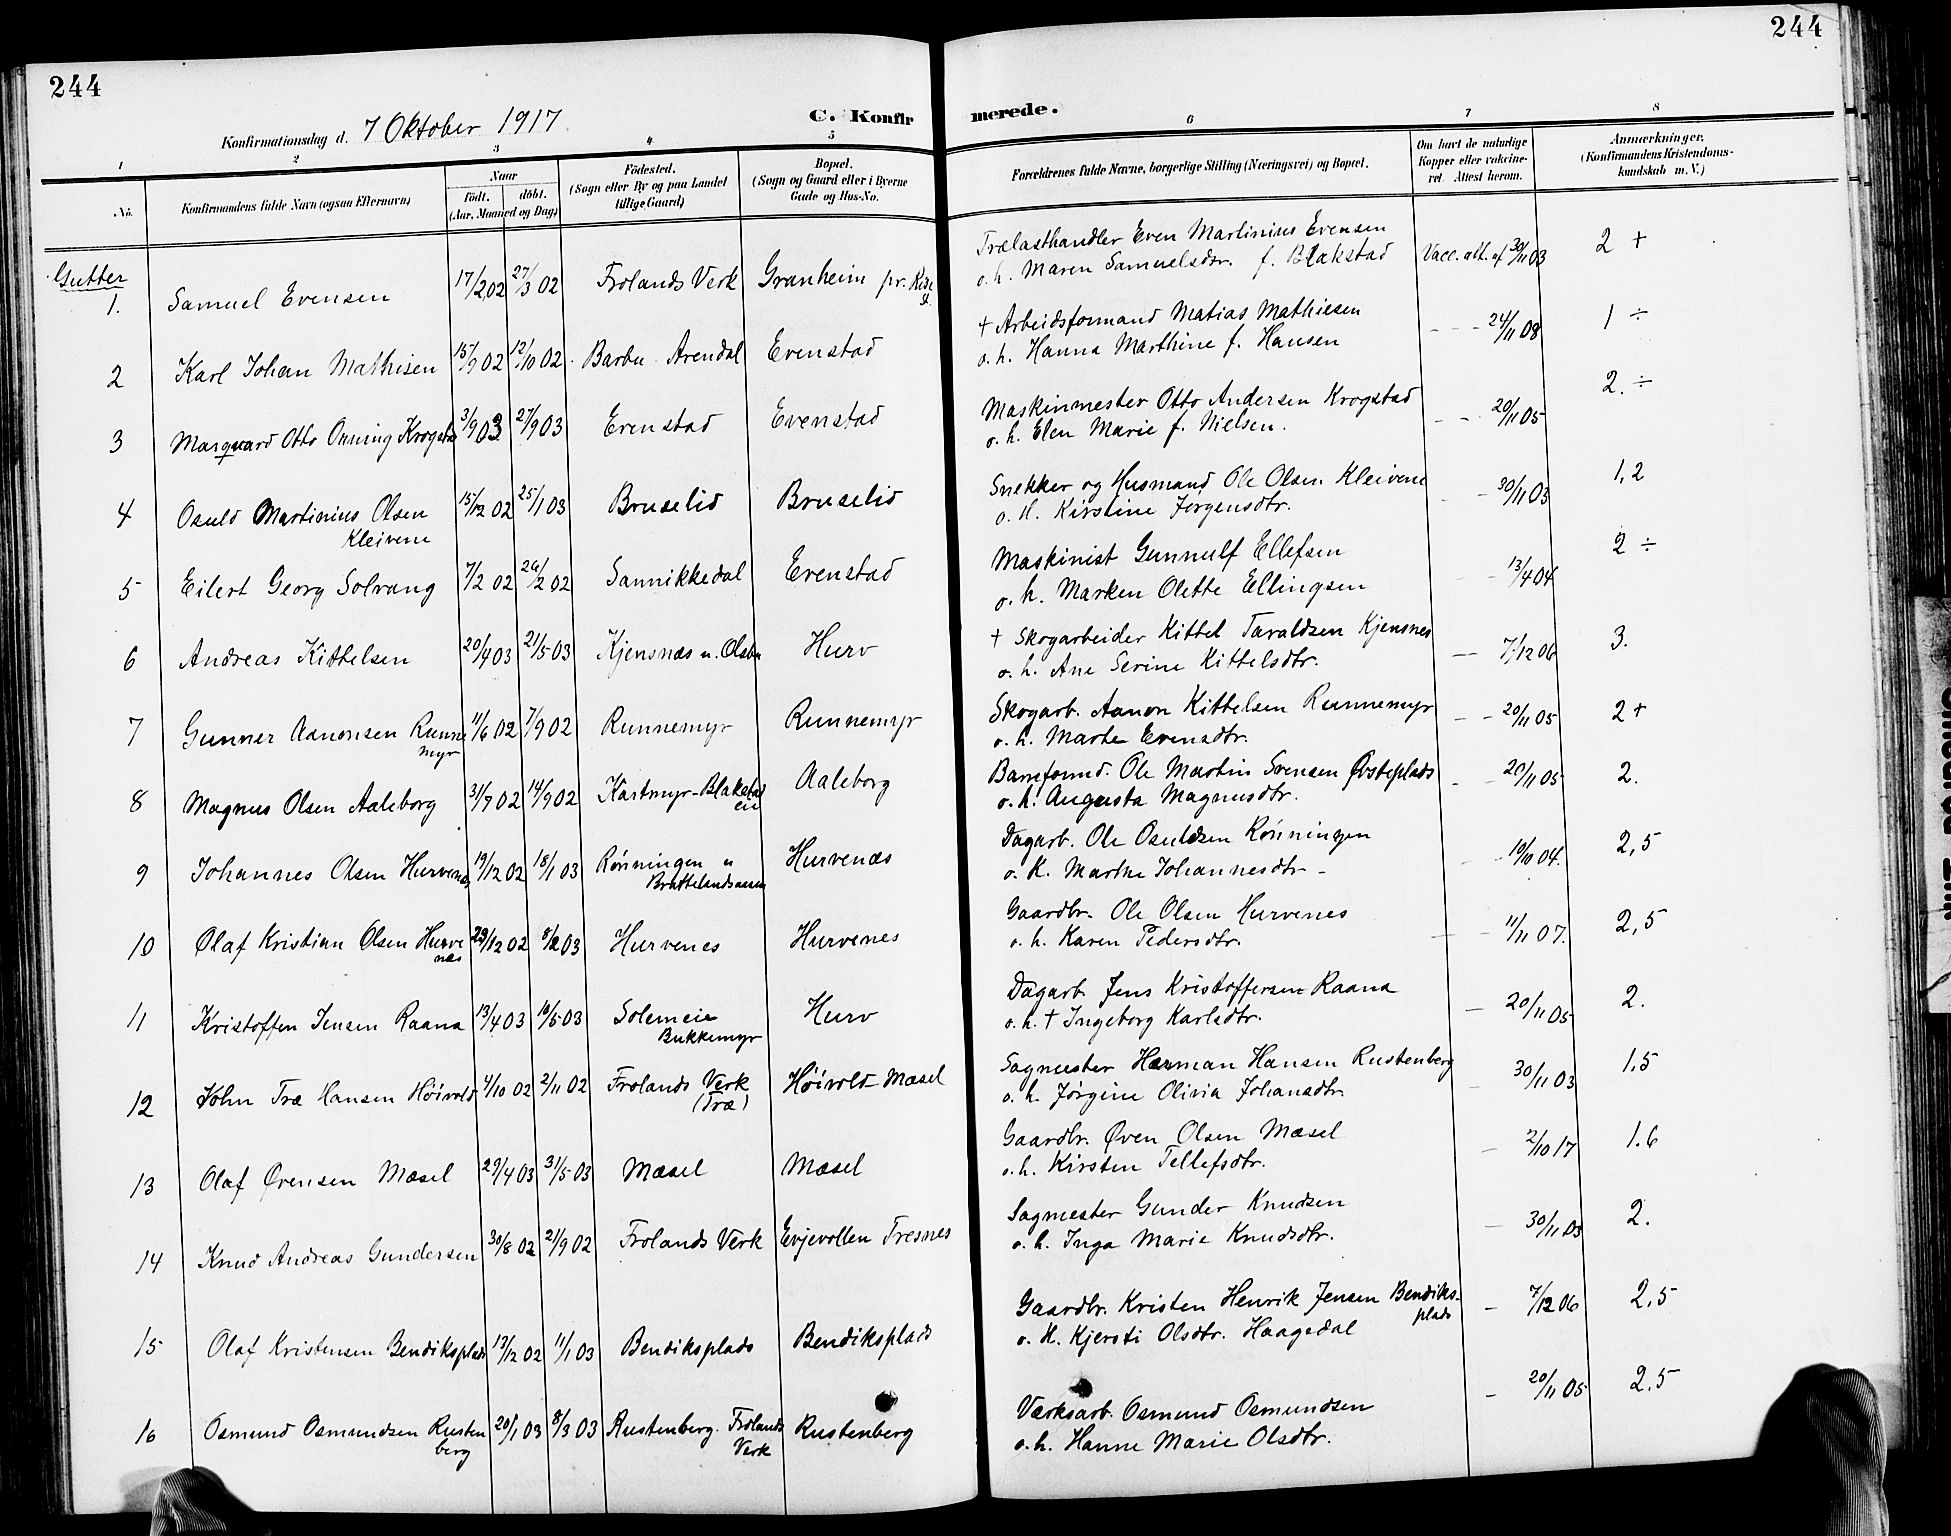 244
244
Konfirmationsdag d. 7 Oktober 1917
C. Konfir merede.
1 2 3 4 5 6 7 8
No.
Konfirmandens fulde Navn (ogsaa Efternavn)
Naar
født. døbt.
(Aar, Maaned og Dag)
Fødested.
(Sogn eller By og paa Landet
tillige Gaard)
Bopæl.
(Sogn og Gaard eller i Byerne
Gade og Hus-No.
Forældrenes fulde Navne, borgerlige Stilling (Næringsvei) og Bopæl.
Om havt de naturlige
Kopper eller vakcine-
ret. Attest herom.
Anmærkninger.
(Konfirmandens Kristendoms-
kundskab m. V.)
Gutter
1. Samuel Evensen 17/2 02 27/3 02 Frolands Verk Granheim pr. Rise st.
Trælasthandler Even Martinius Evensen
o. h. Maren Samuelsdtr. f. Blakstad Vacc. att. af 30/11 03 2 +
2 Karl Johan Mathisen 15/9 02 12/10 02 Barbu Arendal Evenstad
+ Arbeidsformand Matias Mathiesen
o. h. Hanna Marthine f. Hansen - - - 24/11 08 1 ÷
3 Marquard Otto Onning Krogstad 3/9 03 27/9 03 Evenstad Evenstad
Maskinmester Otto Andersen Krogstad
o. h. Elen Marie f. Nielsen. - - 20/11 05 2. ÷
4 Osuld Martinius Olsen
Kleivene 15/12 02 25/1 03 Bruselid Bruselid
Snekker og Husmand Ole Olsen Kleivene
o. H. Kirstine Jørgensdtr. - 30/11 03 1,2
5 Eilert Georg Solvang 7/2 02 /2 02 Sannikkedal Evenstad
Maskinist Gunnulf Ellefsen
o. h. Marken Olette Ellingsen - - 13/4 04 2 ÷
6 Andreas Kittelsen 20/4 03 21/5 03 Kjensnæs u. Olsbu Hurv
+ Skogarbeider Kittel Taraldsen Kjensnes
o. h. Ane Serine Kittelsdtr. - 7/12 06 3.
7 Gunner Aanonsen Runne
myr 11/6 02 7/9 02 Runnemyr Runnemyr
Skogarb. Aanon Kittelsen Runnemyr
o. h. Marte Evensdtr. - - 20/11 05 2+
8 Magnus Olsen Aaleborg 31/7 02 14/9 02 Kartmyr-Blakstad
eie Aaleborg
Baneformd. Ole Martin Svensen Østeplads
o. h. Augusta Magnusdtr. - - 20/11 05 2.
9 Johannes Olsen Hurvenes 19/12 02 18/1 03 Rønningen u
Brattelandsaasen Hurvenæs
Dagarb. Ole Osuldsen Rønningen
o. K. Marthe Johannesdtr - - 10/10 04. 2,5
10 Olaf Kristian Olsen Hurve
næs 29/12 02 8/2 03 Hurvenes Hurvenes
Gaardbr. Ole Olsen Hurvenes
o. h. Karen Pedersdtr. - - 11/11 07. 2,5
11 Kristoffen Jensen Raana 13/4 03 10/5 03 Solemeie
Bukkemyr Hurv
Dagarb. Jens Kristoffersen Raana
o. h. + Ingeborg Karlsdtr. - 20/11 05 2.
12 John Træ Hansen Høivold 4/10 02 2/11 02 Frolands Verk
(Træ) Høivold Mæsel
Sagmester Herman Hansen Rustenberg
o. h. Jørgine Olivia Johansdtr. - 30/11 03 1.5
13 Olaf Øvensen Mæsel 29/4 03 31/5 03 Mæsel Mæsel
Gaardbr. Øven Olsen Mæsel
o. h. Kirsten Tellefsdtr. - 2/10 17 1.6
14 Knud Andreas Gundersen 30/8 02 21/9 02 Frolands Verk Evjevollen Tresnes
Sagmester Gunder Knudsen
o. h. Inga Marie Knudsdtr. - 30/11 03 2.
15 Olaf Kristensen Bendiksplads 13/12 02 11/1 03 Bendiksplads Bendiksplads
Gaardbr. Kristen Henrik Jensen Bendiks-
plads
o. H. Kjersti Olsdtr. Haagedal - 7/12 06 2.5
16 Osmund Osmundsen Rusten
berg 20/1 03 8/3 03 Rustenberg. Frolands
Verk Rustenberg
Værksarb. Osmund Osmundsen
o. h. Hanne Marie Olsdtr. - 20/11 05 2.5